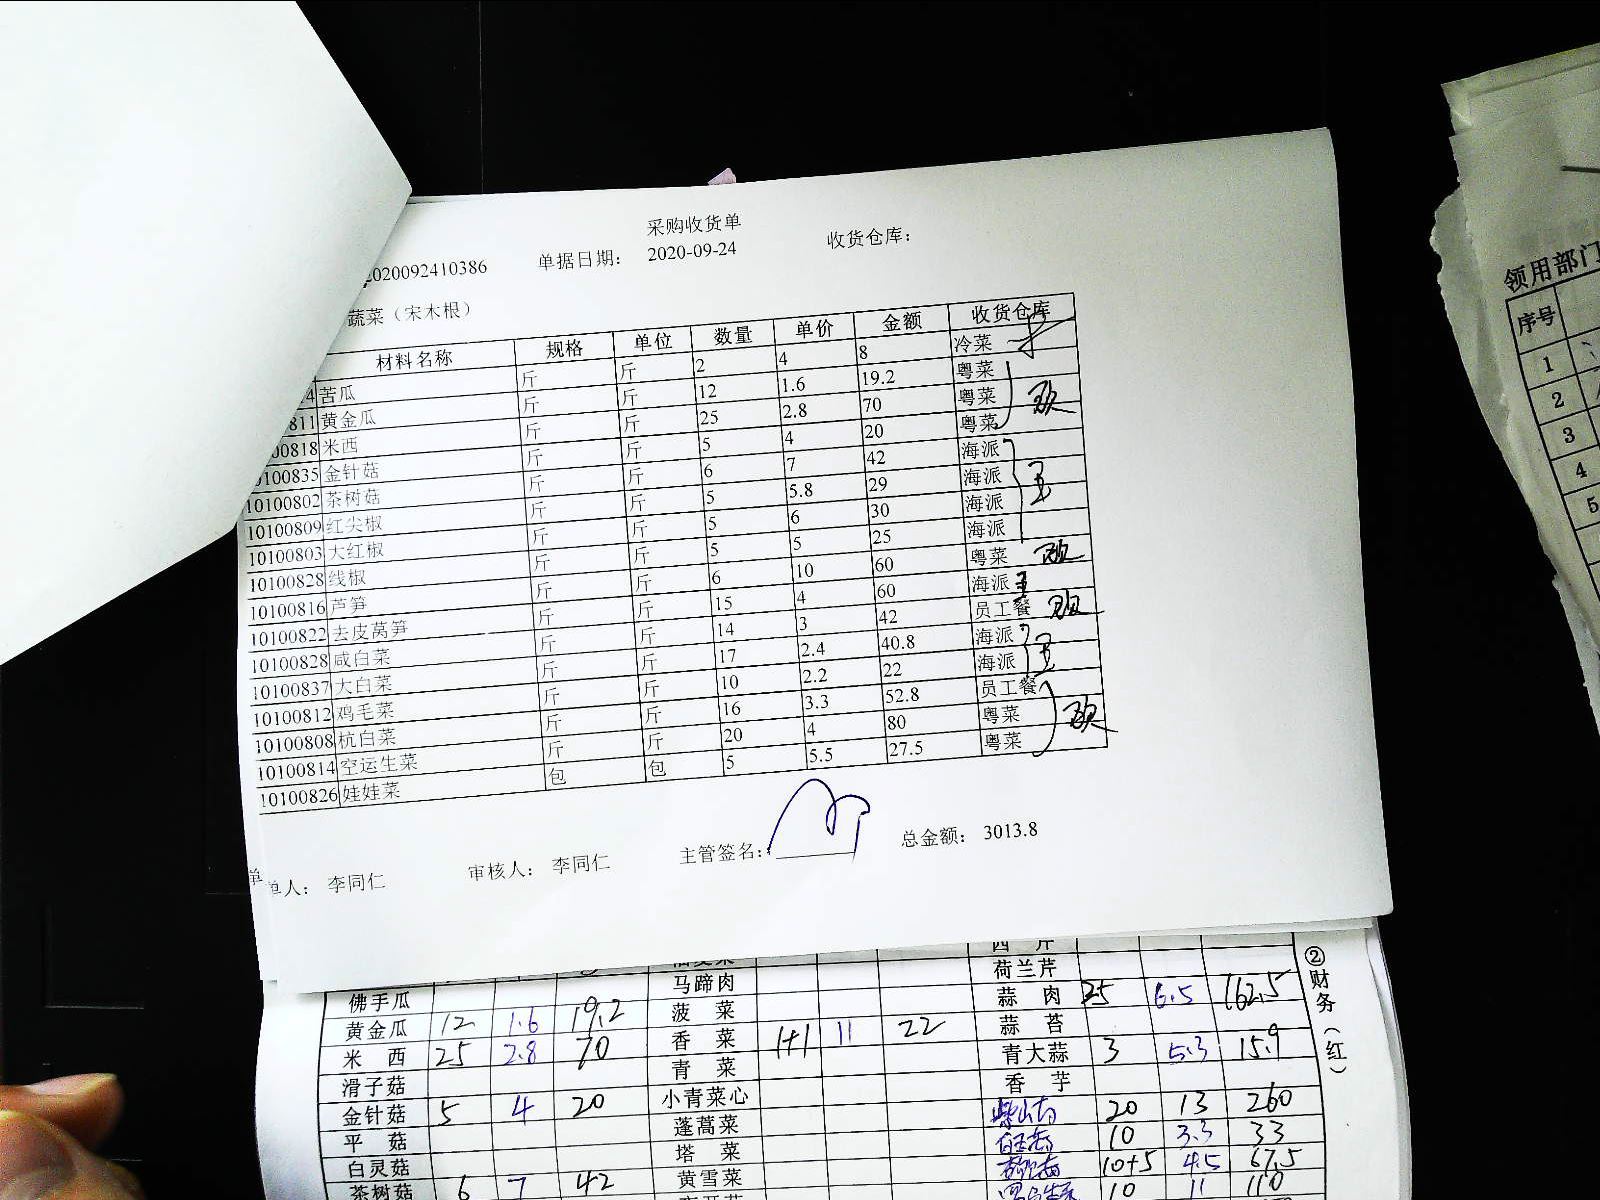 采购收货单
2020092410386 单据日期： 2020-09-24 收货仓库：
蔬菜（宋木根）
材料名称 规格 单位 数量 单价 金额 收货仓库
4 苦瓜 斤 斤 2 4 8 冷菜
811 黄金瓜 斤 斤 12 1.6 19.2 粤菜
00818 米西 斤 斤 25 2.8 70 粤菜
0100835 金针菇 斤 斤 5 4 20 粤菜
10100802 茶树菇 斤 斤 6 7 42 海派
10100809 红尖椒 斤 斤 5 5.8 29 海派
10100803 大红椒 斤 斤 5 6 30 海派
10100828 线椒 斤 斤 5 5 25 海派
10100816 芦笋 斤 斤 6 10 60 粤菜
10100822 去皮莴笋 斤 斤 15 4 60 海派
10100828 咸白菜 斤 斤 14 3 42 员工餐
10100837 大白菜 斤 斤 17 2.4 40.8 海派
10100812 鸡毛菜 斤 斤 10 2.2 22 海派
10100808 杭白菜 斤 斤 16 3.3 52.8 员工餐
10100814 空运生菜 斤 斤 20 4 80 粤菜
10100826 娃娃菜 包 包 5 5.5 27.5 粤菜
单人： 李同仁 审核人： 李同仁 主管签名： 总金额： 3013.8
西 芹
马蹄肉 荷兰芹
佛手瓜 菠 菜 蒜 肉 25 6.5 162.5
黄金瓜 12 1.6 19.2 香 菜 1+1 11 22 蒜 苔
米 西 25 2.8 70 青 菜 青大蒜 3 5.3 15.9
滑子菇 小青菜心 香 芋
金针菇 5 4 20 蓬蒿菜 20 13 260
平 菇 塔 菜 10 3.3 33
白灵菇 黄雪菜 10+5 4.5 67.5
茶树菇 6 7 42 10 11 110
②财务（红）
领用部门
序号
1
2
3
4
5